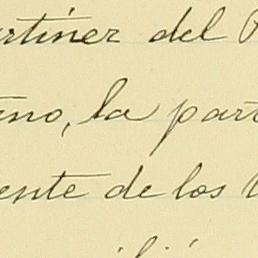 rtinez del
no, la part
ente de los